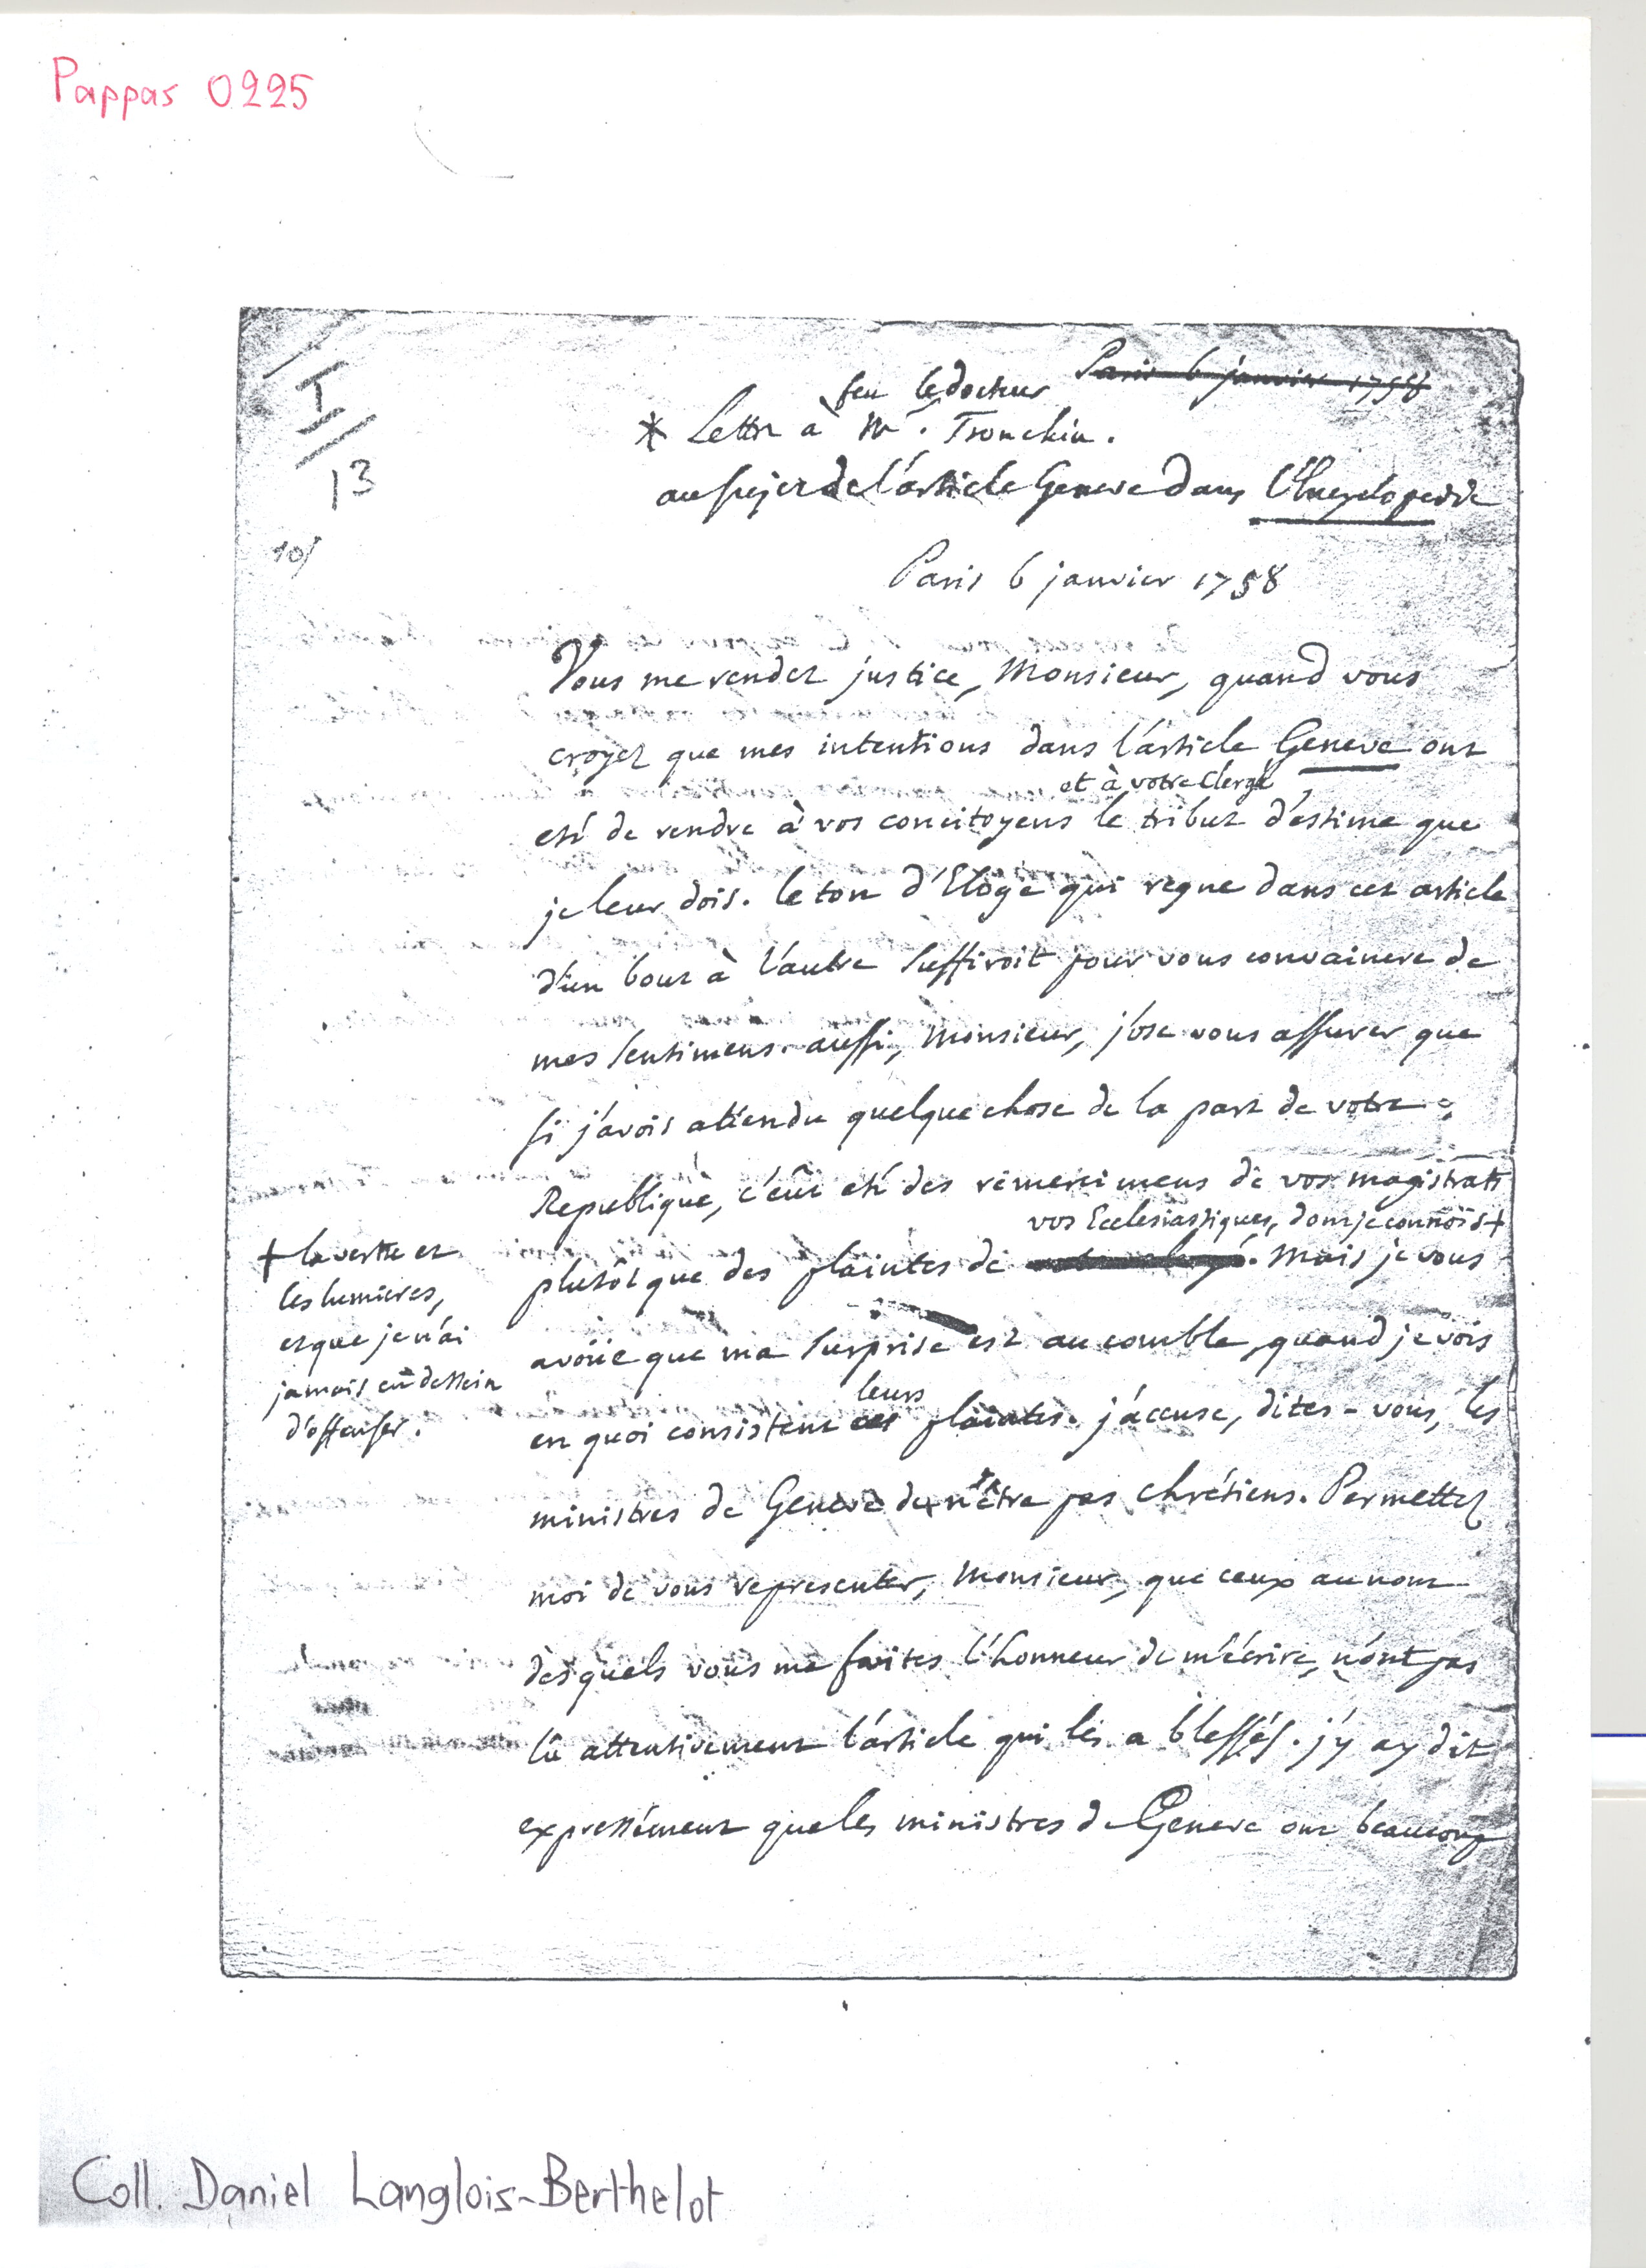 Pappas 0225
I
13
10/
Paris 6 janvier 1758
feu le docteur
* Lettre à Mr. Tronchin.
au sujet de l'article Geneve dans l'Encyclopedie
Paris 6 janvier 1758
Vous me rendez justice, Monsieur, quand vous
croyez que mes intentions dans l'article Geneve ont
et à votre Clergé
eté de rendre à vos concitoyens le tribut d'estime que
je leur dois. le ton d'Eloge qui regne dans cet article
d'un bout à l'autre suffiroit pour vous convaincre de
mes sentimens. aussi, Monsieur, j'ose vous assurer que
si j'avois attendu quelque chose de la part de votre
Republique, c'eût eté des remercimens de vos magistrats
vos Ecclesiastiques, dont je connois +
plutôt que des plaintes de . Mais je vous
+ la vertu et
les lumieres,
et que je n'ai
jamais eu dessein
d'offenser.
avoüe que ma surprise est au comble, quand je vois
leurs
en quoi consistent ces plaintes. j'accuse, dites-vous, les
ministres de Geneve de n'être pas chrétiens. Permettez
moi de vous representer, Monsieur, que ceux au nom
desquels vous me faites l'honneur de m'écrire, n'ont pas
lû attentivement l'article qui les a blessés. j'y ay dit
expressément que les ministres de Geneve ont beaucoup
Coll. Daniel Langlois-Berthelot